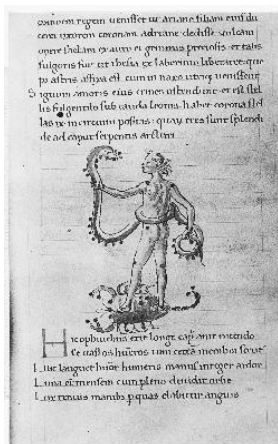 regem uenisset ut ariane filiam eius du
ceret uxorem coronam adriane dedisse vulcani
opere thesam ex auro et gemmis preciosis et talis
fulgoris fuit ut thesea ex laberinto liberaret que
astris affixa est cum in naxo utriq; uenissent
Signum amoris eius crines ostendunt et est stel
lis fulgentib; sub cauda leonis habet corona stel
las ix in circuitu positas quaꝝ tres sunt splendi
de ad caput serpentis arcturi
Hic ophiuchus erit longe cap̄ ante nitendo
se uastos hūeros tum cetera membra
languet humeris manus integer ardor
Luna etiā mensem cum pleno diuidat orbe
Lux tenuis manib; p quas elabitur anguis